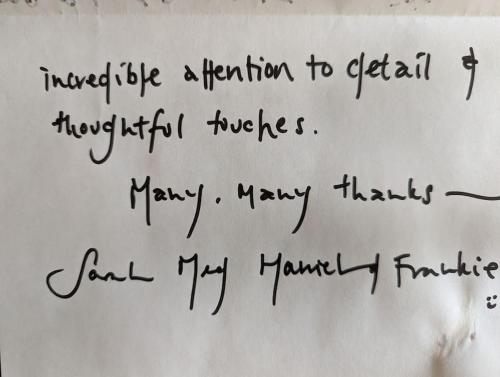 incredible attention to detail &
thoughtful touches.
Many, many thanks —
Sarah Meg & Frankie